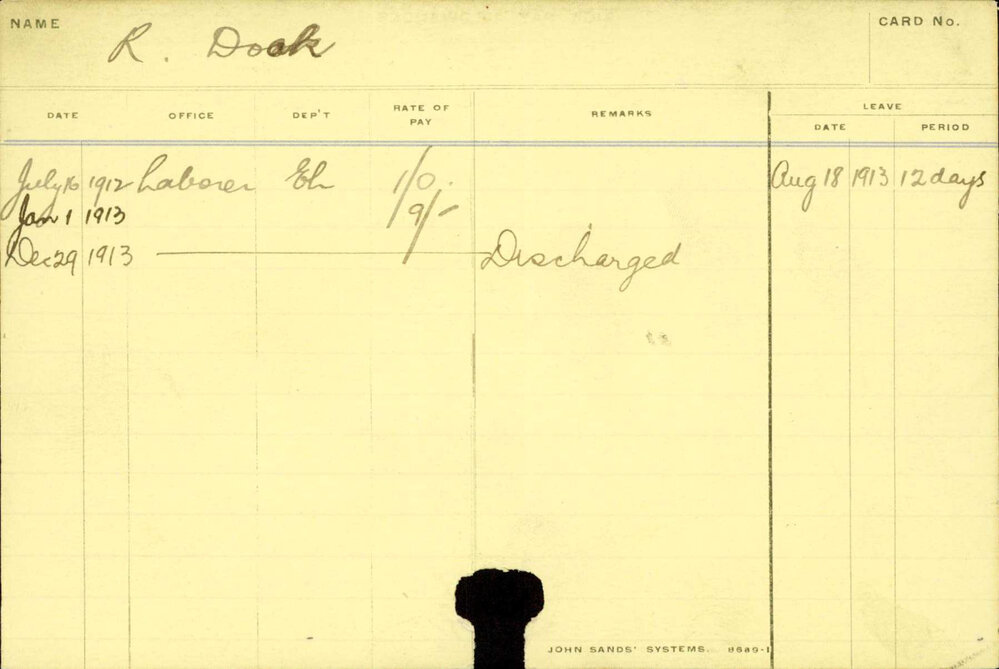 NAME R. Dock CARD No.
DATE OFFICE DEP'T RATE OF PAY REMARKS LEAVE
DATE PERIOD
July 16 1912 Laborer 1/0. Aug 18 1913 12 days
Jan 1 1913 9/-
Dec 29 1913 Discharged
JOHN SANDS' SYSTEMS. 8689-1